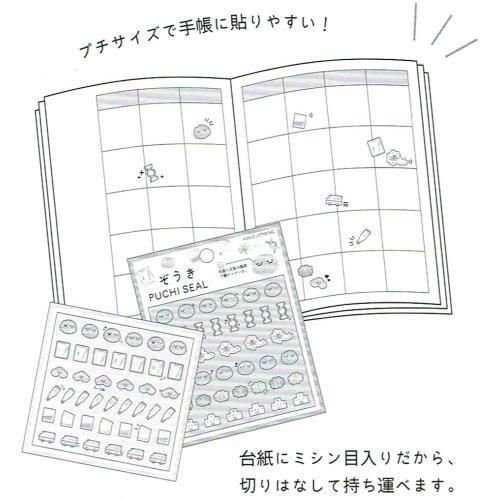 プチサイズで手帳に貼りやすい！
ぞうき
PUCHI SEAL
台紙にミシン目入りだから、
切りはなして持ち運べます。